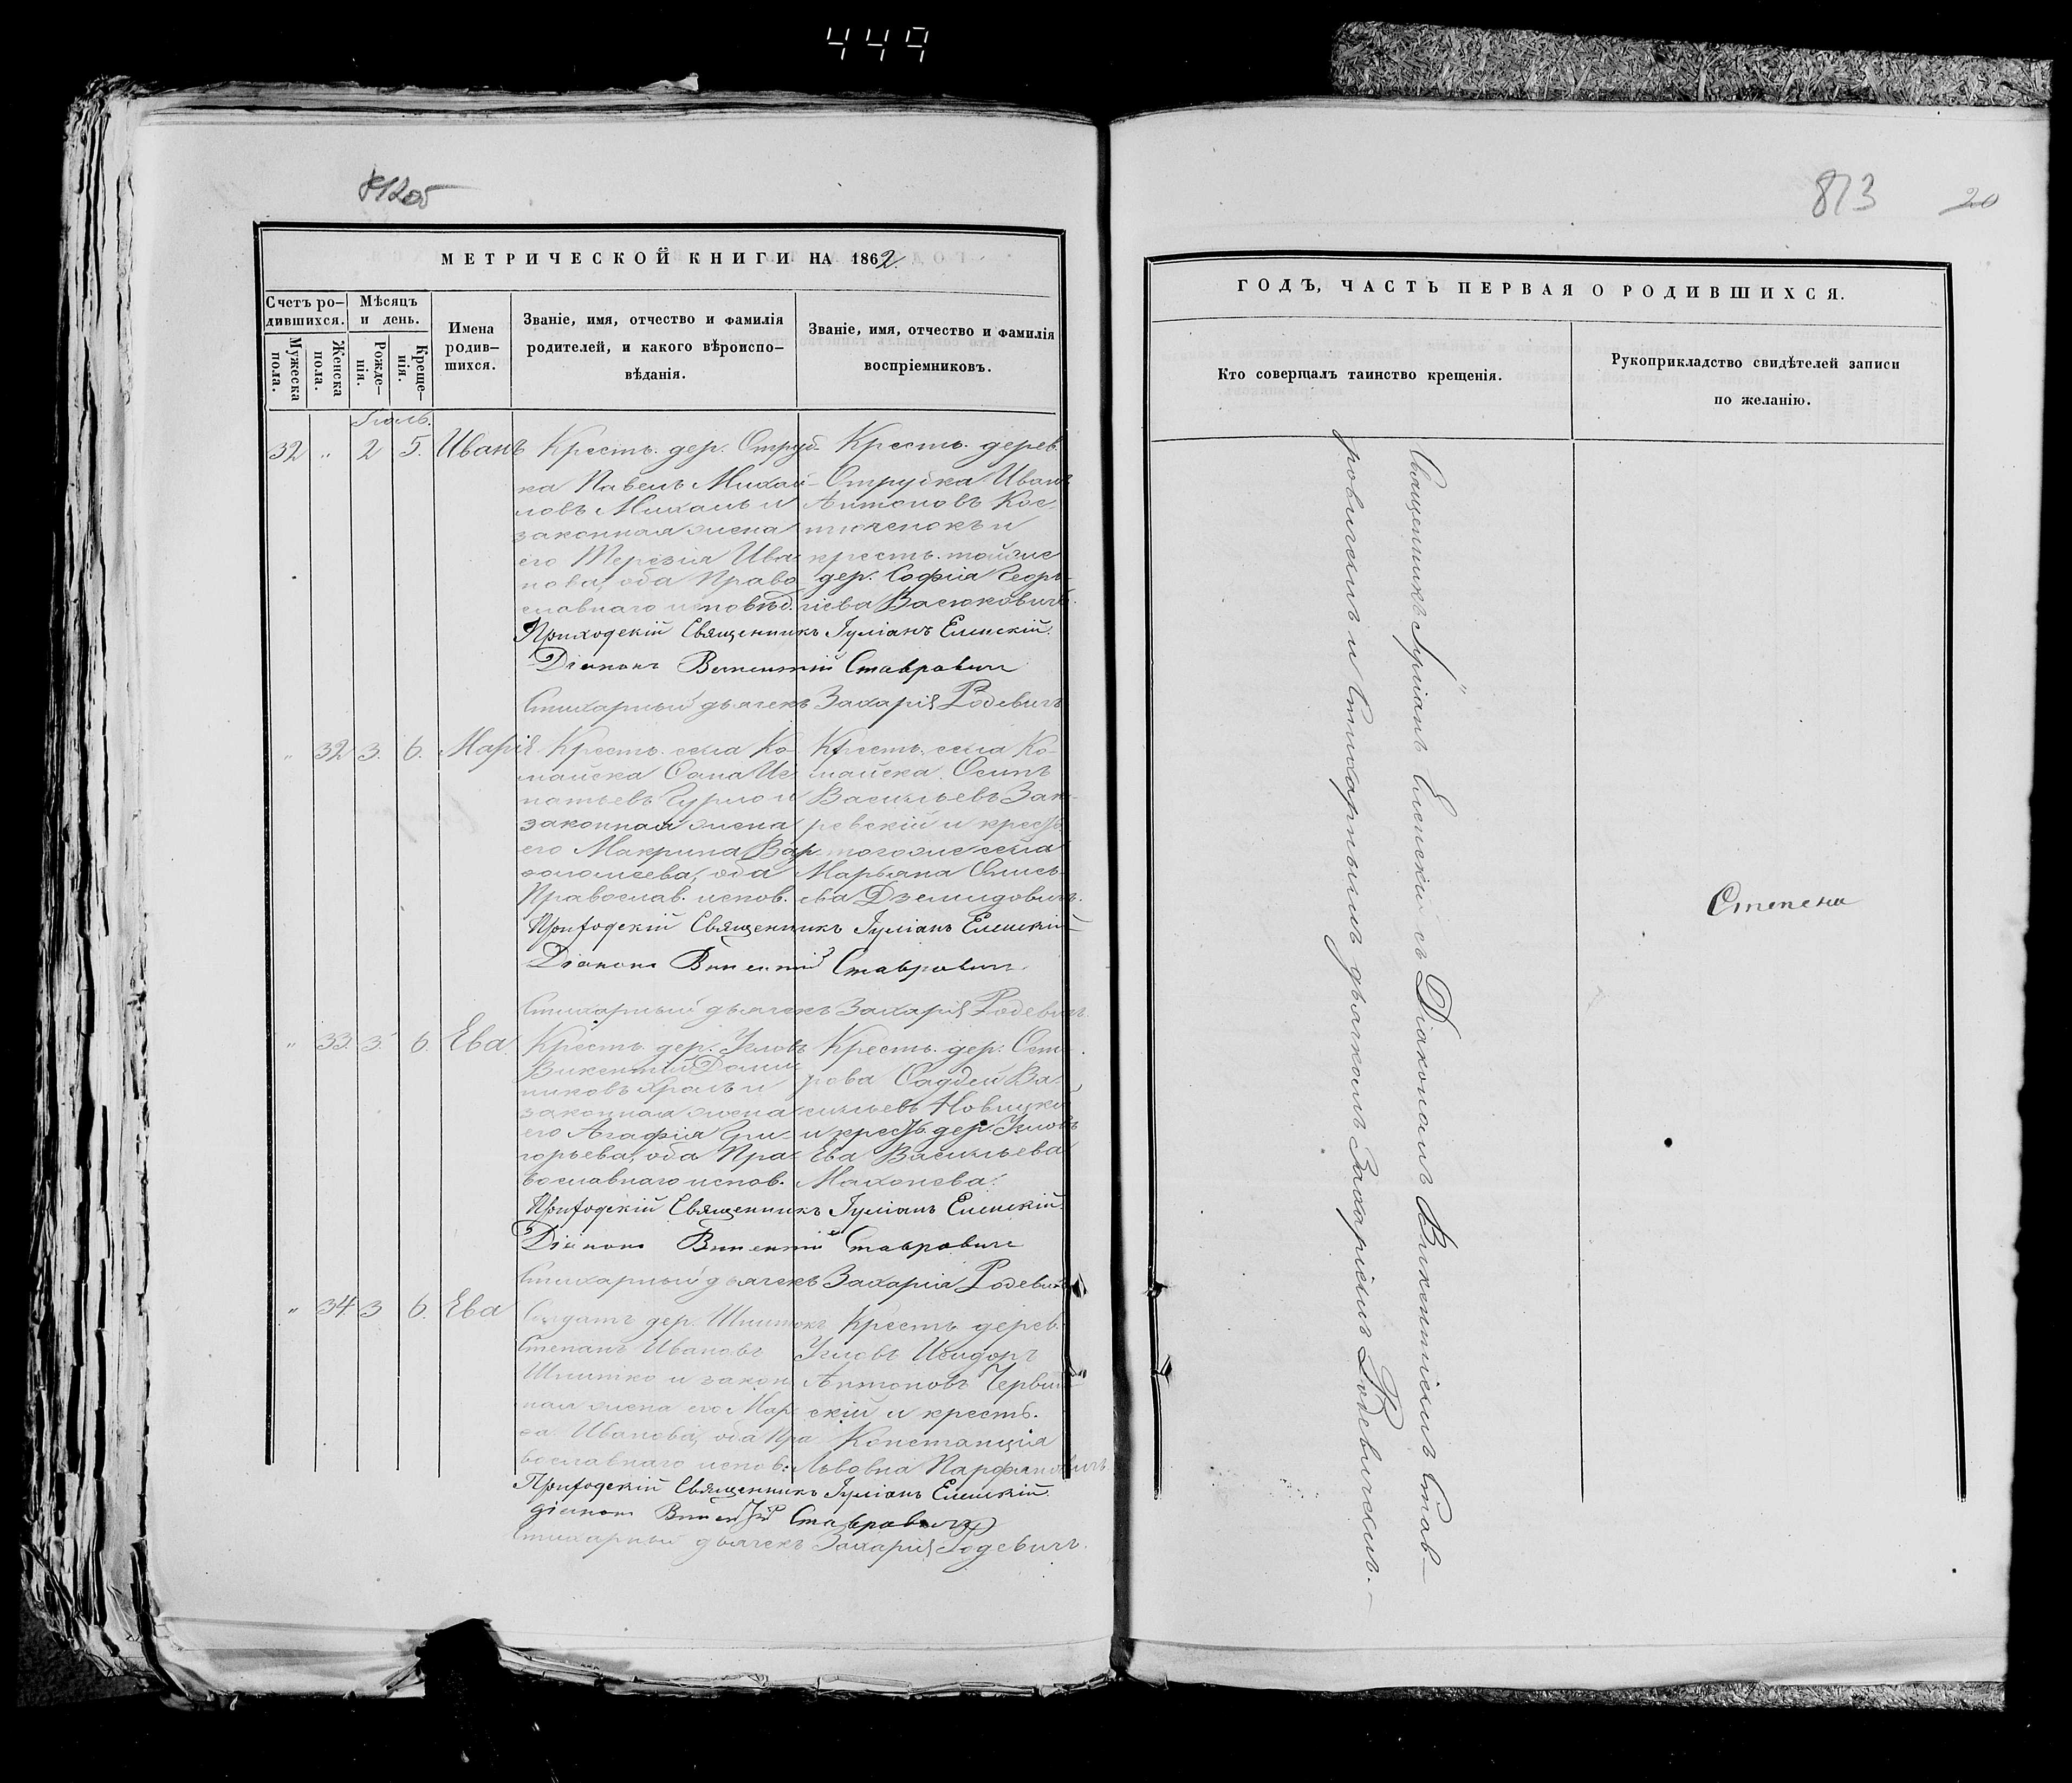 449
873 20
МЕТРИЧЕСКОЙ КНИГИ НА 1862.
Счетъ ро-
дившихся.
Мѣсяцъ
и день.
Мужеска
пола.
Женска
пола.
Рожде-
нія.
Креще-
нія.
Имена
родив-
шихся.
Званіе, имя, отчество и фамилія
родителей, и какого вѣроиспо-
вѣданія.
Званіе, имя, отчество и фамилія
воспріемниковъ.
Іюль.
32 " 2 5. Иванъ
Крестъ. дер. Отруб-
ка Павелъ Михай-
ловъ Михаль и
законная жена
его Терезія Ива-
нова, оба Право-
славнаго исповѣд.
Крестъ. дерев.
Отрубка Иванъ
Антоновъ Кос-
тюченокъ и
крестъ. тойже
дер. Софія Геор-
гіева Васюковичъ.
Приходскій Священникъ Іуліанъ Еленскій.
Діаконъ Викентій Ставровичъ
Стихарный дьячекъ Захарія Родевичъ
" 32 3. 6. Марія.
Крестъ. села Ко-
майска Сапа Иг-
натьевъ Гурло и
законная жена
его Макрина Вар-
ѳоломеева, оба
Православ. испов.
Крестъ. села Ко-
майска. Осипъ
Васильевъ Зак-
ревскій и крестъ.
тогоже села
Марьяна
ева Дземидовичъ.
Приходскій Священникъ Іуліанъ Еленскій
Діаконъ Викентій Ставровичъ
Стихарный дьячекъ Захарія Родевичъ.
" 33. 3. 6. Ева.
Крестъ. дер. Угловъ
Викентій Доми-
никовъ и
законная жена
его Агафія Гри-
горьева, оба Пра-
вославнаго испов.
Крестъ. дер. Ост-
рова Ѳаддей Ва-
сильевъ Новицкій
и крестъ. дер. Угловъ
Ева Васильева
Махонева.
Приходскій Священникъ Іуліанъ Еленскій.
Діаконъ Викентій Ставровичъ
Стихарный дьячекъ Захарія Родевичъ
" 34 3 6. Ева
Солдатъ дер. Шпитокъ
Степанъ Ивановъ
Шпитко и закон-
ная жена его Мар-
ѳа Иванова, оба Пра-
вославнаго испов.
Крестъ. дерев.
Угловъ Исидоръ
Антоновъ Червин-
скій и крестъ.
Констанція
Львовна Парфяновичъ
Приходскій Священникъ Іуліанъ Еленскій.
діаконъ Викентій Ставровичъ
Стихарный дьячекъ Захарія Родевичъ.
ГОДЪ, ЧАСТЬ ПЕРВАЯ О РОДИВШИХСЯ.
Кто совершалъ таинство крещенія.
Рукоприкладство свидѣтелей записи
по желанію.
Священникъ Іуліанъ Еленскій съ Діакономъ Викентіемъ Став-
ровичемъ и Стихарнымъ дьячкомъ Захаріемъ Родевичемъ.
Степена